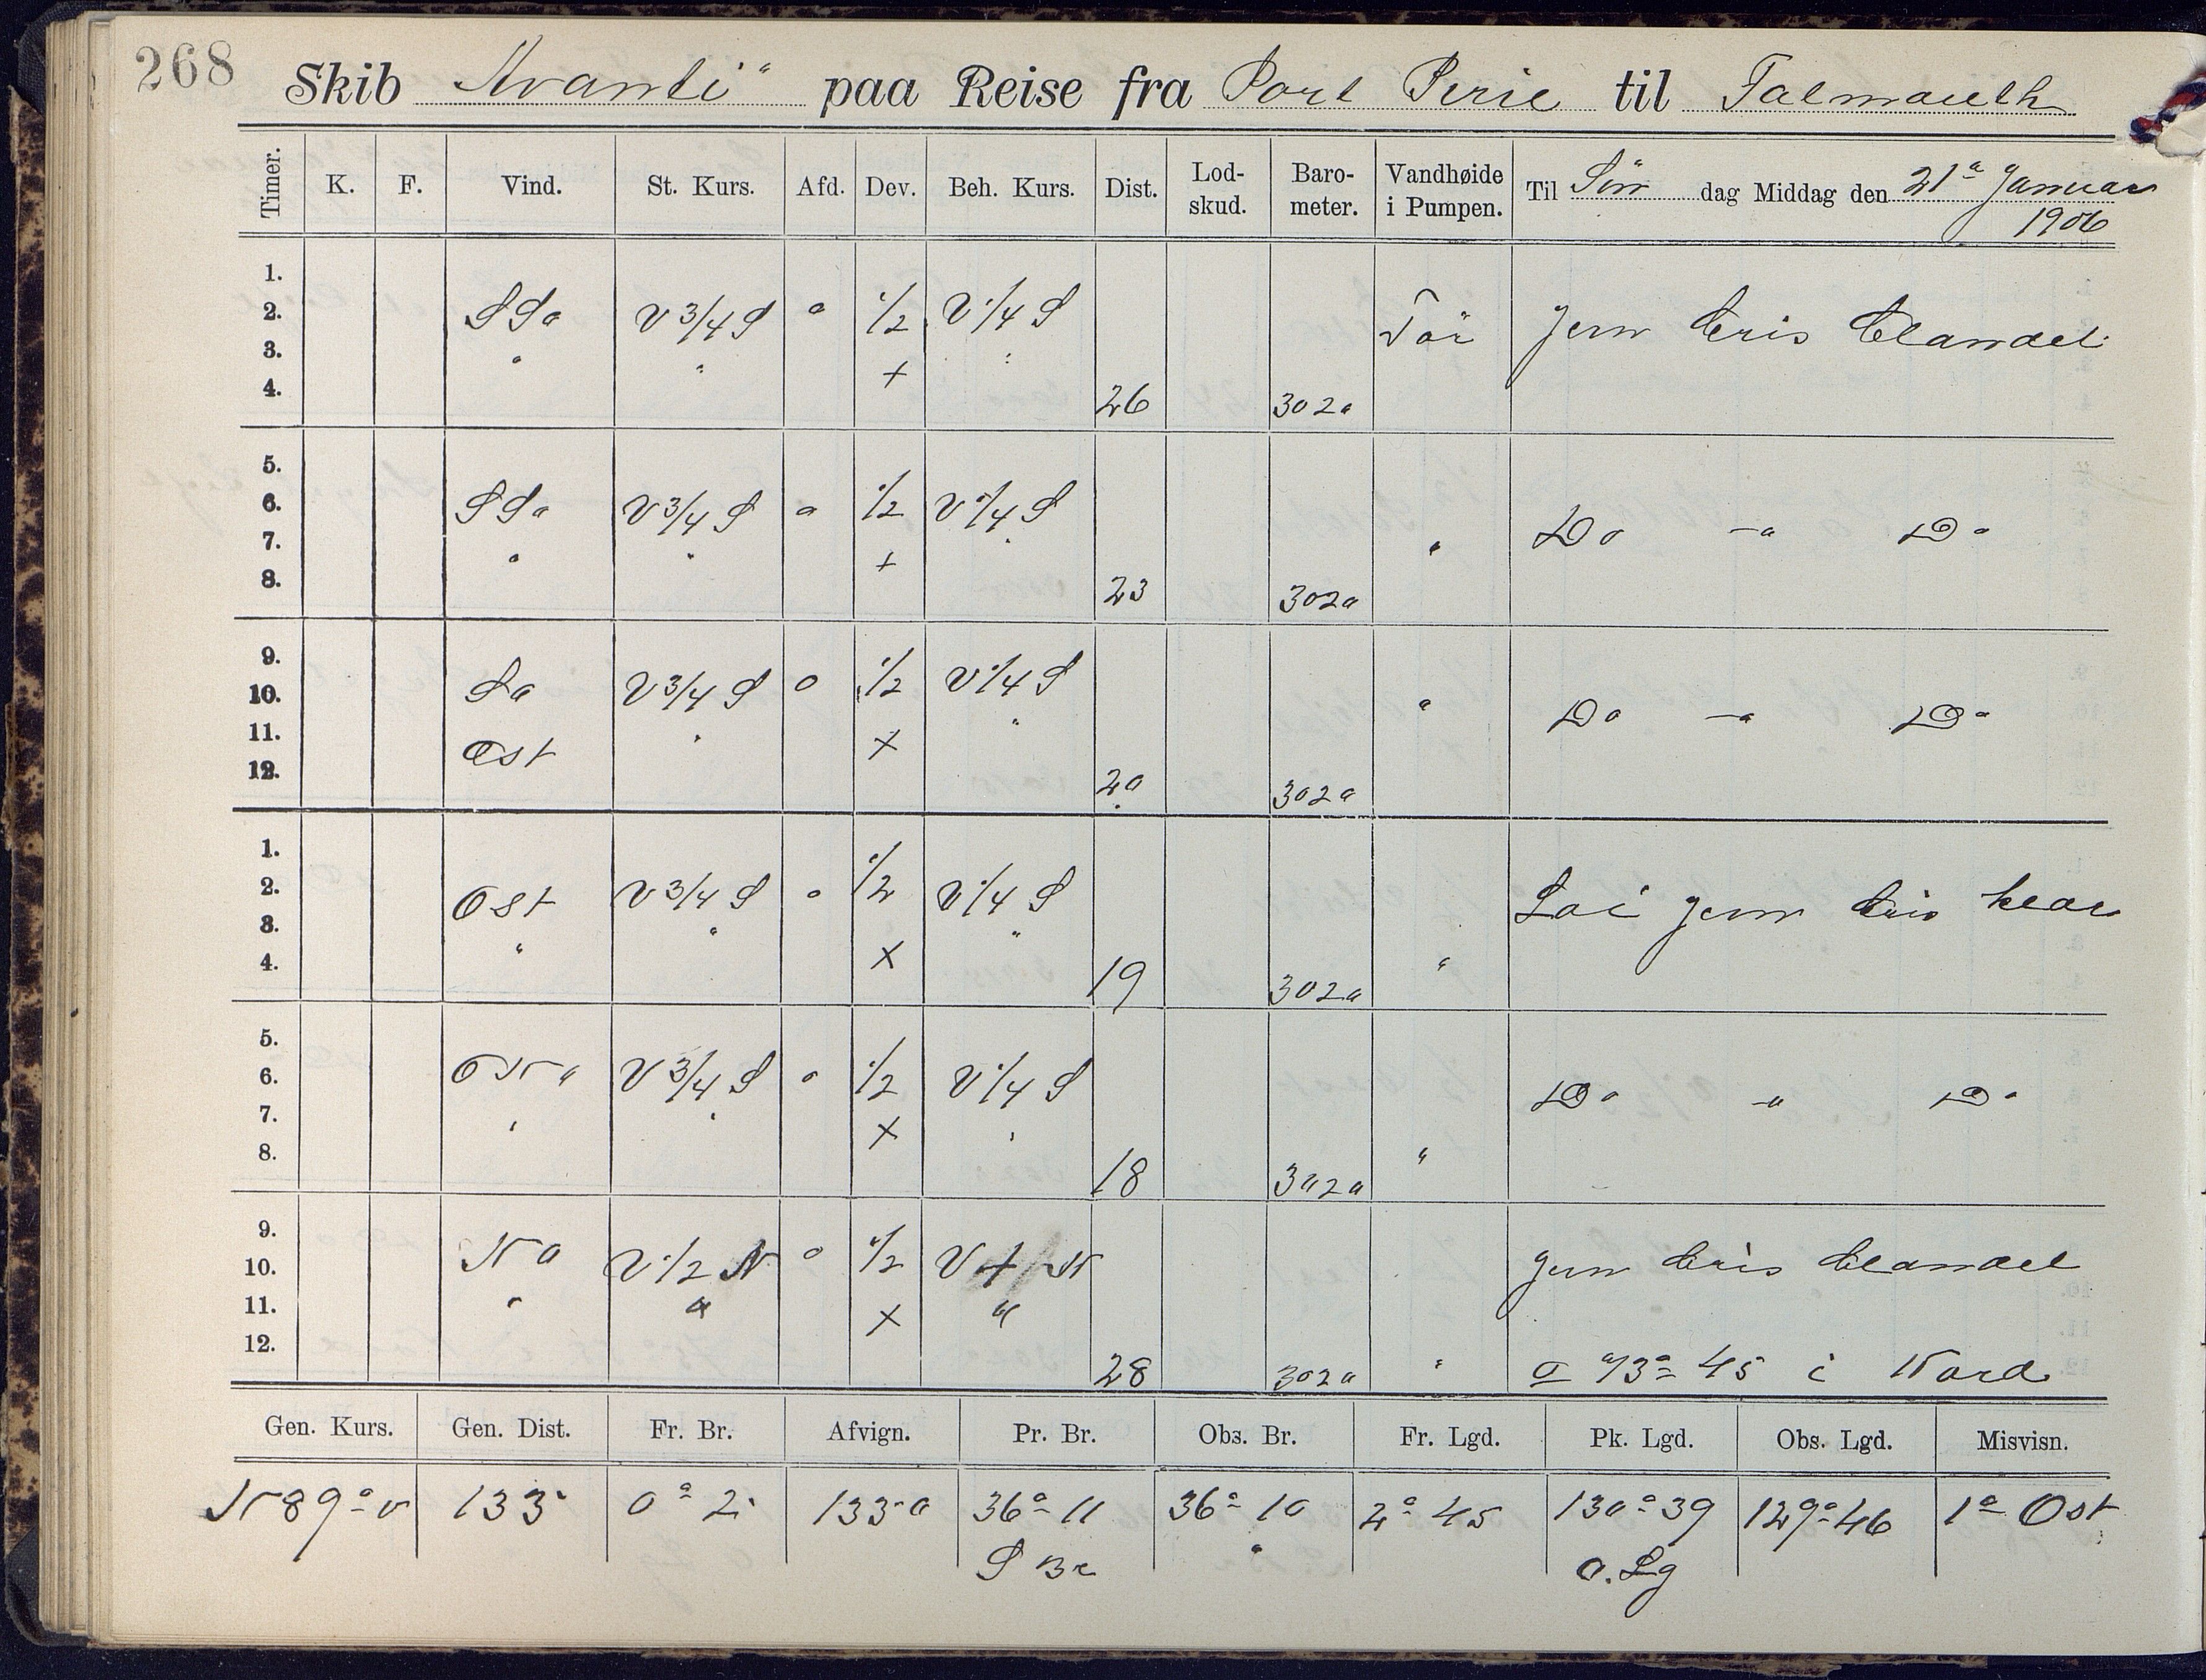 268
Skib „Avanti“ paa Reise fra Port Pirie til Falmouth
Timer. K. F. Vind. St. Kurs. Afd. Dev. Beh. Kurs. Dist. Lod-skud. Baro-meter. Vandhøide i Pumpen. Til Søn dag Middag den 21de Januar 1906
1.
2. SSO V 3/4 S 0 1/2 V 1/4 S Tør Jevn Bris Clandet
3. " " + "
4. 26 3020
5.
6. SSO V 3/4 S 0 1/2 V 1/4 S Do — Do
7. " " + " "
8. 23 3020
9.
10. SO V 3/4 S 0 1/2 V 1/4 S " Do — Do
11. Ost " + "
12. 20 3020
1.
2. Ost V 3/4 S 0 1/2 V 1/4 S Løi Jevn Bris klar
3. " " X " "
4. 19 3020
5.
6. ONO V 3/4 S 0 1/2 V 1/4 S Do " Do
7. " " X "
8. 18 3020 "
9.
10. NO V 1/2 N 0 1/2 V N Jevn Bris Clandet
11. " " X "
12. 28 3020 " 73° 45 i Nord
Gen. Kurs. Gen. Dist. Fr. Br. Afvign. Pr. Br. Obs. Br. Fr. Lgd. Pk. Lgd. Obs. Lgd. Misvisn.
N 89° V 133 0° 2 133 0 36° 11 36° 10 2° 45 130° 39 129° 46 1° Ost
S Br " O. Lg